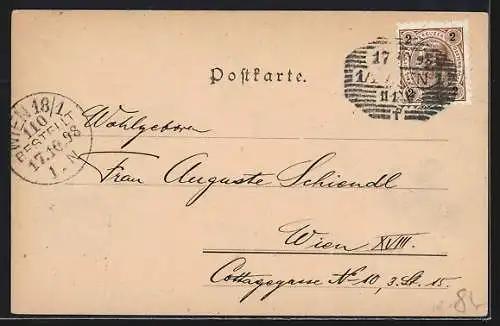 2 KREUZER 2
17 10 98
1/1 WIEN 1
11 1/2 V
Postkarte.
WIEN 18/1
110
BESTELLT
17.10.98
1. N
Wohlgeboren
Frau Auguste Schiendl
Wien XVIII.
Cottagegasse No 10, 3. St. 15.
84